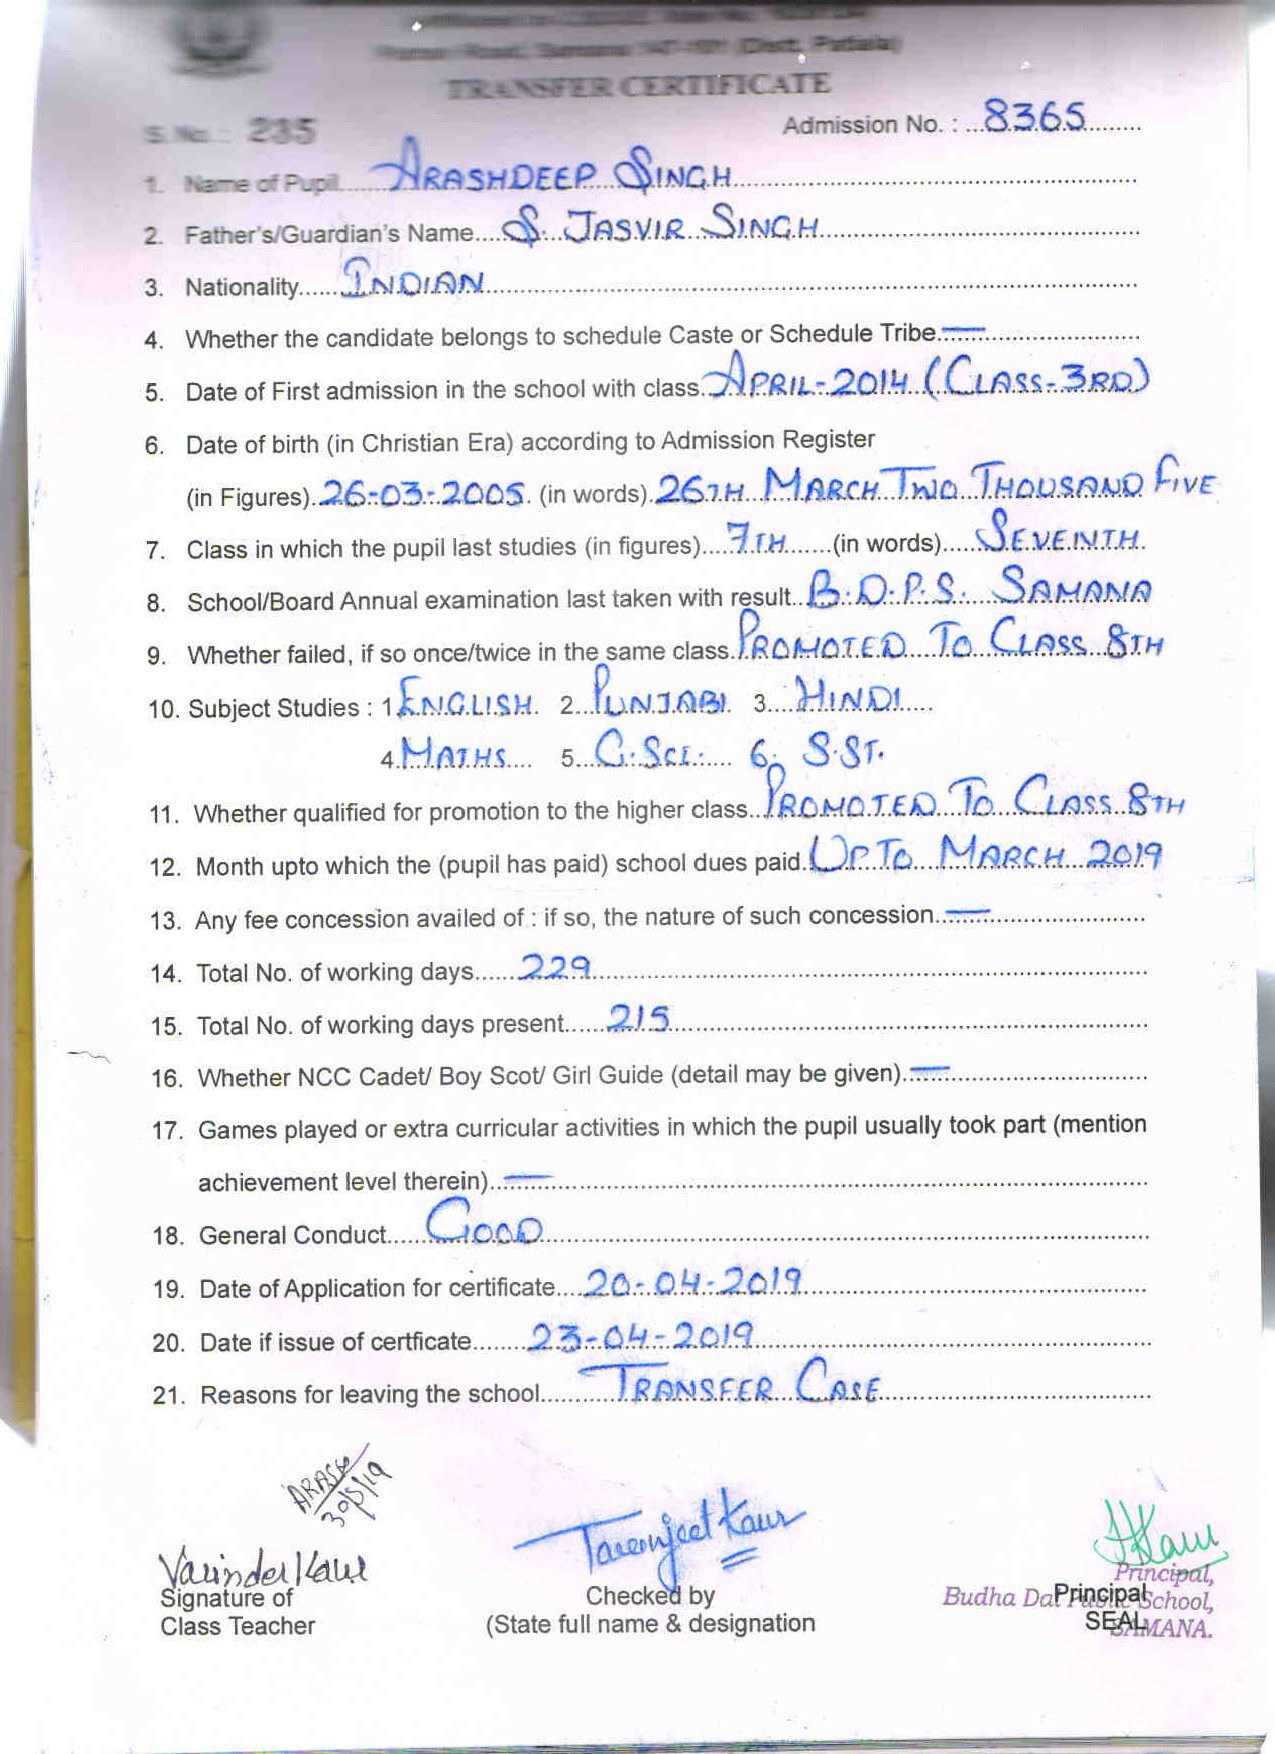 (Dist. Patiala)
TRANSFER CERTIFICATE
S. No. : 235 Admission No. : 8365
1. Name of Pupil ARASHDEEP SINGH
2. Father's/Guardian's Name S. JASVIR SINGH
3. Nationality INDIAN
4. Whether the candidate belongs to schedule Caste or Schedule Tribe —
5. Date of First admission in the school with class APRIL-2014 (CLASS-3RD)
6. Date of birth (in Christian Era) according to Admission Register
(in Figures) 26-03-2005. (in words) 26TH MARCH TWO THOUSAND FIVE
7. Class in which the pupil last studies (in figures) 7TH (in words) SEVENTH
8. School/Board Annual examination last taken with result B.D.P.S. SAMANA
9. Whether failed, if so once/twice in the same class PROMOTED TO CLASS 8TH
10. Subject Studies : 1 ENGLISH 2 PUNJABI 3 HINDI
4 MATHS 5 G.SCI. 6 S.ST.
11. Whether qualified for promotion to the higher class PROMOTED TO CLASS 8TH
12. Month upto which the (pupil has paid) school dues paid UPTO MARCH 2019
13. Any fee concession availed of : if so, the nature of such concession —
14. Total No. of working days 229
15. Total No. of working days present 215
16. Whether NCC Cadet/ Boy Scot/ Girl Guide (detail may be given) —
17. Games played or extra curricular activities in which the pupil usually took part (mention
achievement level therein) —
18. General Conduct GOOD
19. Date of Application for certificate 20-04-2019
20. Date if issue of certficate 23-04-2019
21. Reasons for leaving the school TRANSFER CASE
ARASH
30/5/19
Varinder Kaur Tarenjeet Kaur Kaur
Signature of
Class Teacher
Checked by
(State full name & designation
Principal,
Budha Dal Public School,
SAMANA.
Principal
SEAL